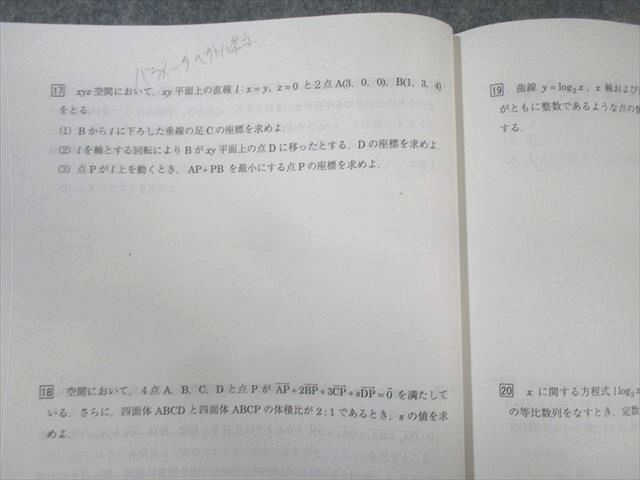 パラメータベクトル表示
17 xyz空間において，xy平面上の直線 l : x=y，z=0 と2点A(3，0，0)，B(1，3，4)
をとる．
(1) Bからlに下ろした垂線の足Cの座標を求めよ．
(2) lを軸とする回転によりBがxy平面上の点Dに移ったとする．Dの座標を求めよ．
(3) 点Pがl上を動くとき，AP+PB を最小にする点Pの座標を求めよ．
18 空間において，4点A，B，C，Dと点Pが \overrightarrow{AP}+2\overrightarrow{BP}+3\overrightarrow{CP}+s\overrightarrow{DP}=\vec{0} を満たして
いる．さらに，四面体ABCDと四面体ABCPの体積比が2：1であるとき，sの値を求
めよ．
19 曲線 y=log₂x，x軸および
がともに整数であるような点の
する．
20 xに関する方程式 |log₂
の等比数列をなすとき，定数